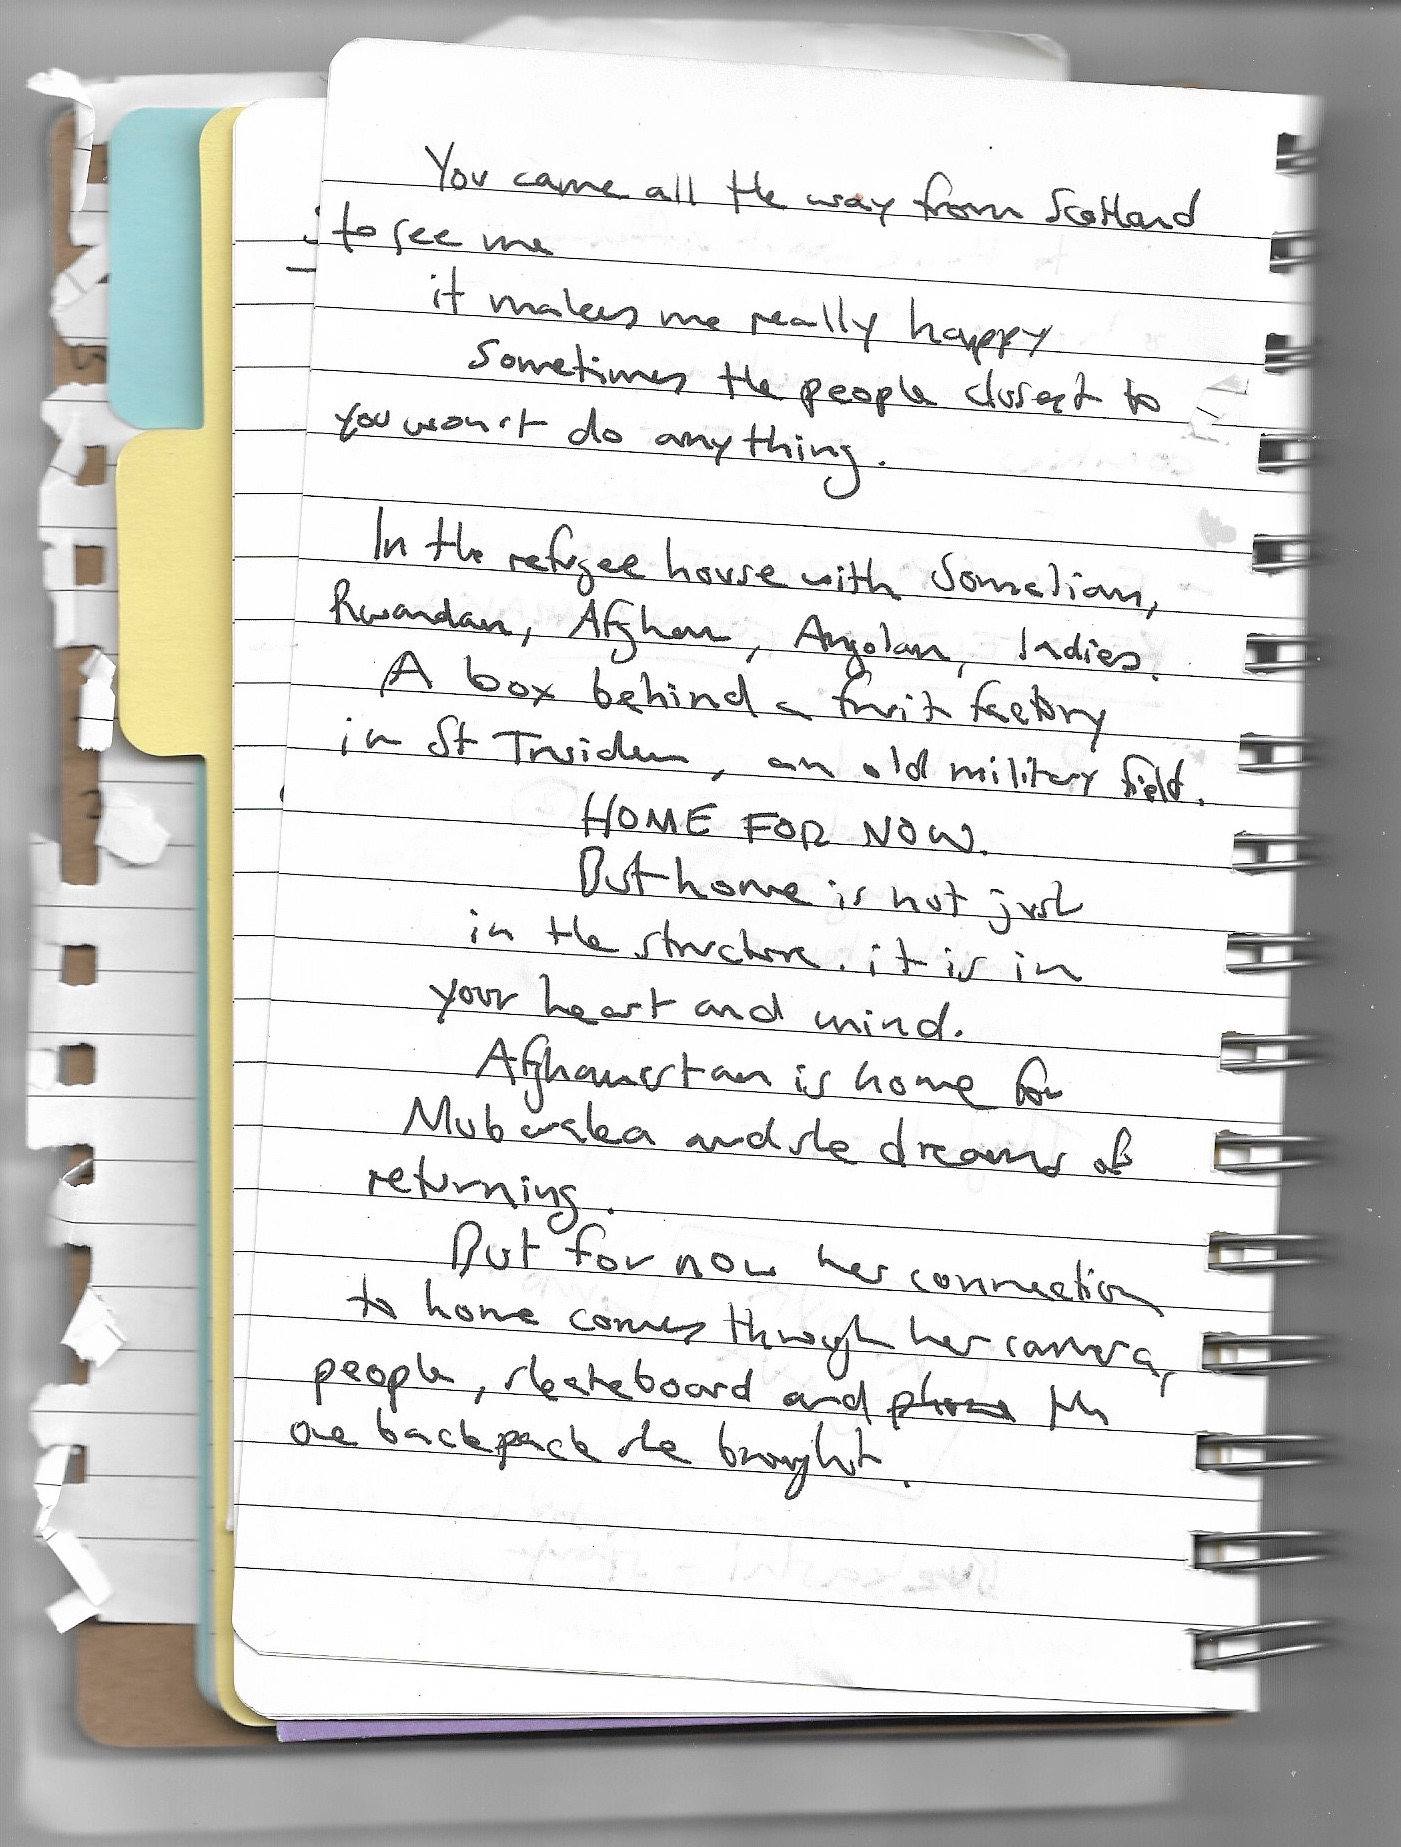 You came all the way from Scotland
to see me
it makes me really happy
Sometimes the people closest to
you won't do anything.
In the refugee house with Somalian,
Rwandan, Afghan, Angolan, Indies.
A box behind a fruit factory
in St Truiden, an old military field.
HOME FOR NOW.
But home is not just
in the structure. it is in
your heart and mind.
Afghanistan is home for
Mubaraka and she dreams of
returning.
But for now her connection
to home comes through her camera,
people, skateboard and phone the
one backpack she brought.